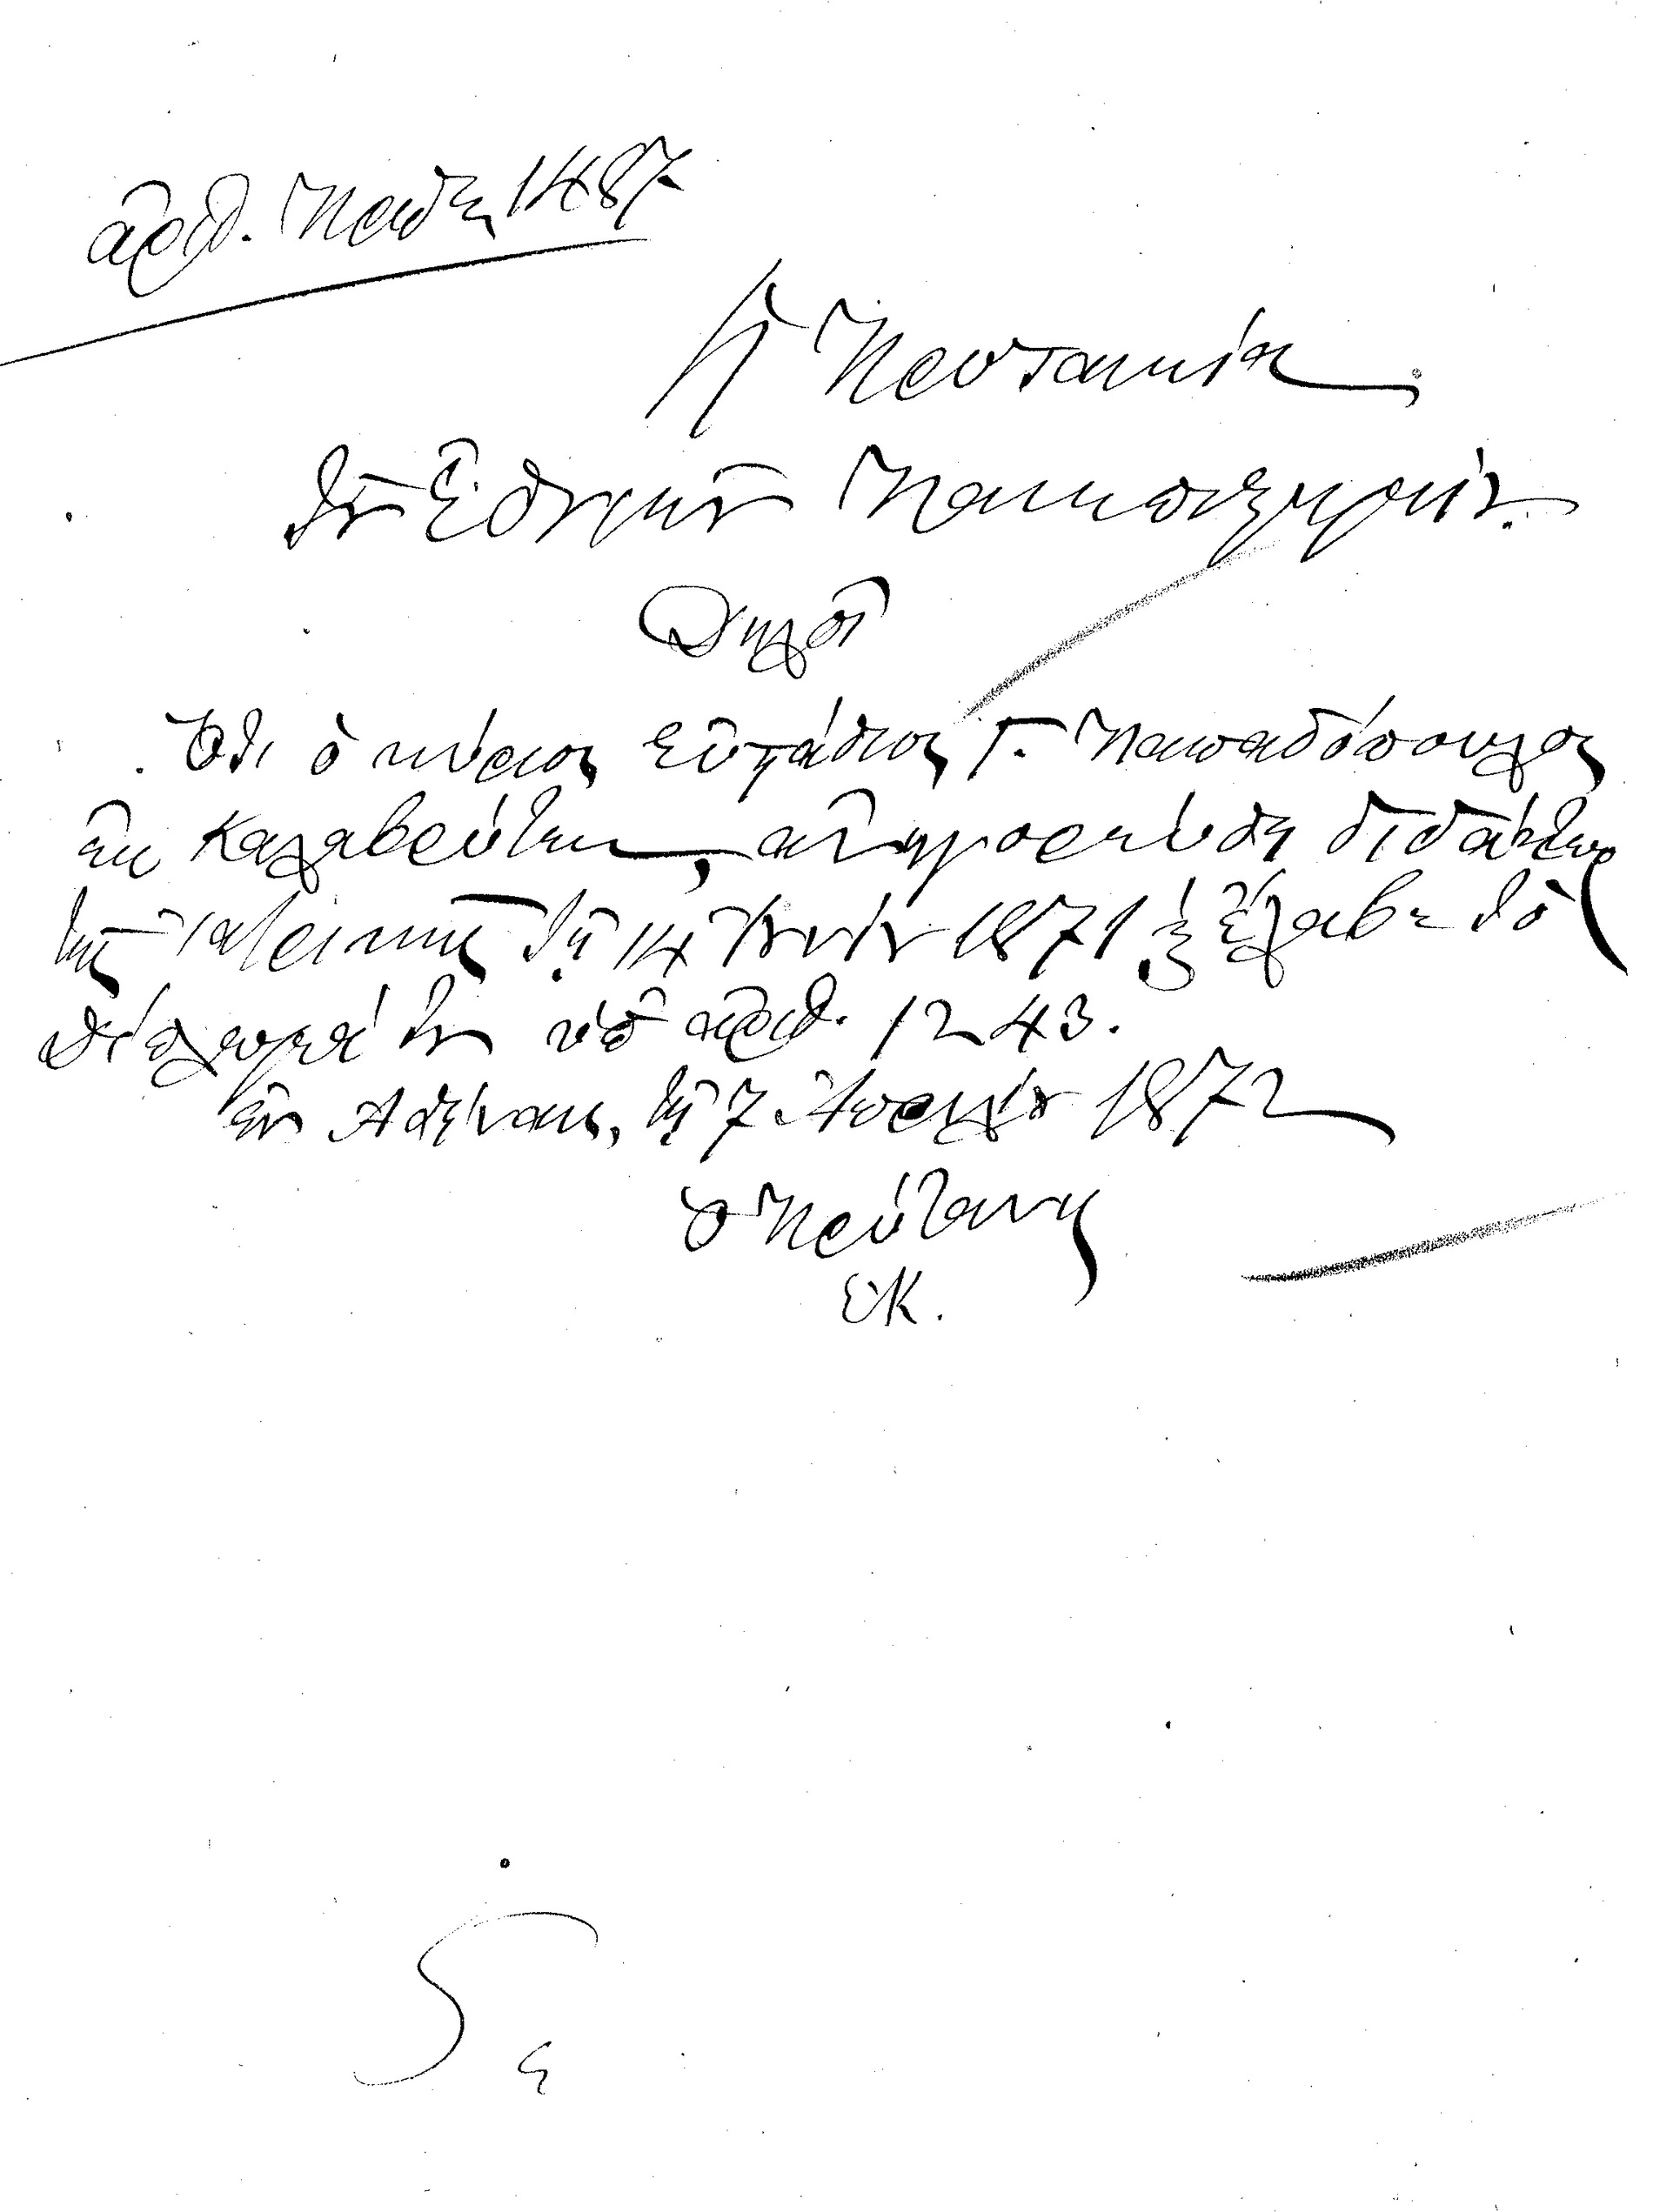 ἀριθ. Πρωτ. 1487
Ἡ Πρυτανεία
τοῦ Ἐθνικοῦ Πανεπιστημίου.
Δηλοῖ
Ὅτι ὁ κύριος Εὐστάθιος Γ. Παπαδόπουλος
ἐκ Καλαβρύτων, ἀνηγορεύθη διδάκτωρ
τῆς Ἰατρικῆς τῇ 14 Ἰουνίου 1871 καὶ ἔλαβε τὸ
δίπλωμά του ὑπ' ἀριθ. 1243.
ἐν Ἀθήναις, τῇ 7 Ἀπριλίου 1872
Ὁ Πρύτανις
ΕΚ.